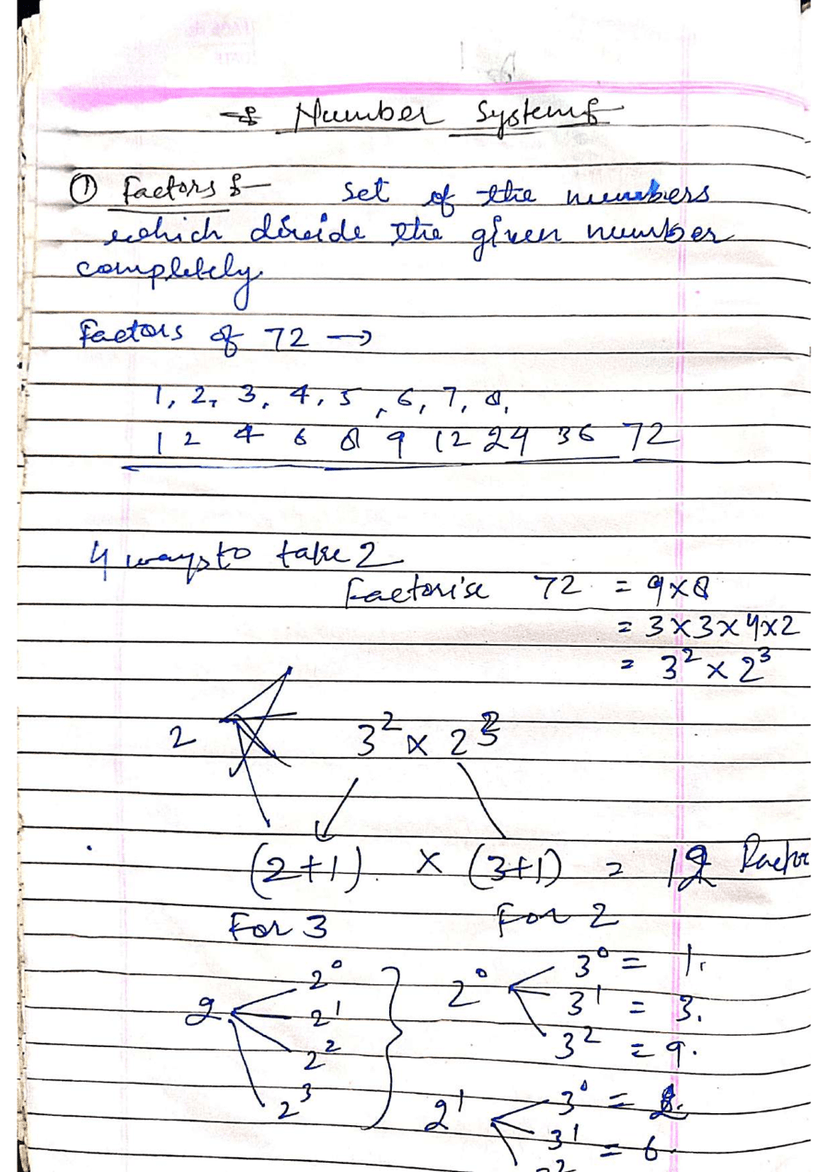 Number System :-
① Factors :- Set of the numbers
which divide the given number
completely.
Factors of 72 →
1, 2, 3, 4, 5, 6, 7, 8,
1 2 4 6 8 9 12 24 36 72
4 ways to take 2
Factorise 72 = 9×8
= 3×3×4×2
= 3² × 2³
2 3² × 2³
(2+1) × (3+1) = 12 Factor
For 3 For 2
2 2⁰ 2¹ 2² 2³
2⁰ 3⁰ = 1.
3¹ = 3.
3² = 9.
2¹ 3⁰ = 2.
3¹ = 6
3²